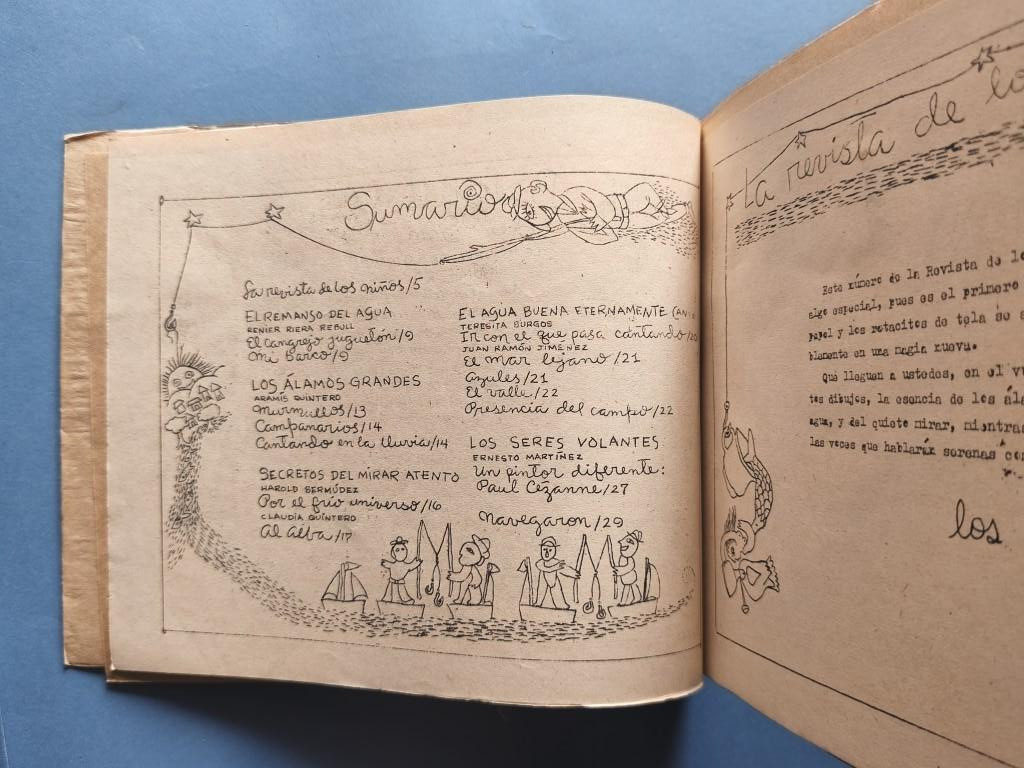 Sumario
La revista de los niños/5
EL REMANSO DEL AGUA
RENIER RIERA REBULL
El cangrejo juguetón/9
Mi barco/9
LOS ÁLAMOS GRANDES
ARAMÍS QUINTERO
Murmullos/13
Campanarios/14
Cantando en la lluvia/14
SECRETOS DEL MIRAR ATENTO
HAROLD BERMÚDEZ
Por el frío universo/16
CLAUDIA QUINTERO
Al alba/17
EL AGUA BUENA ETERNAMENTE
TERESITA BURGOS
Ir con el que pasa cantando
JUAN RAMÓN JIMÉNEZ
El mar lejano/21
Azules/21
El valle/22
Presencia del campo/22
LOS SERES VOLANTES
ERNESTO MARTÍNEZ
Un pintor diferente:
Paul Cézanne/27
Navegaron/29
La revista de
Este número de la Revista de
algo especial, pues es el primero
papel y los retacitos de tela se
blemente en una magia nueva.
Que lleguen a ustedes, en el
tes dibujos, la esencia de los
agua, y del quieto mirar, mientras
las veces que hablarán serenas
los